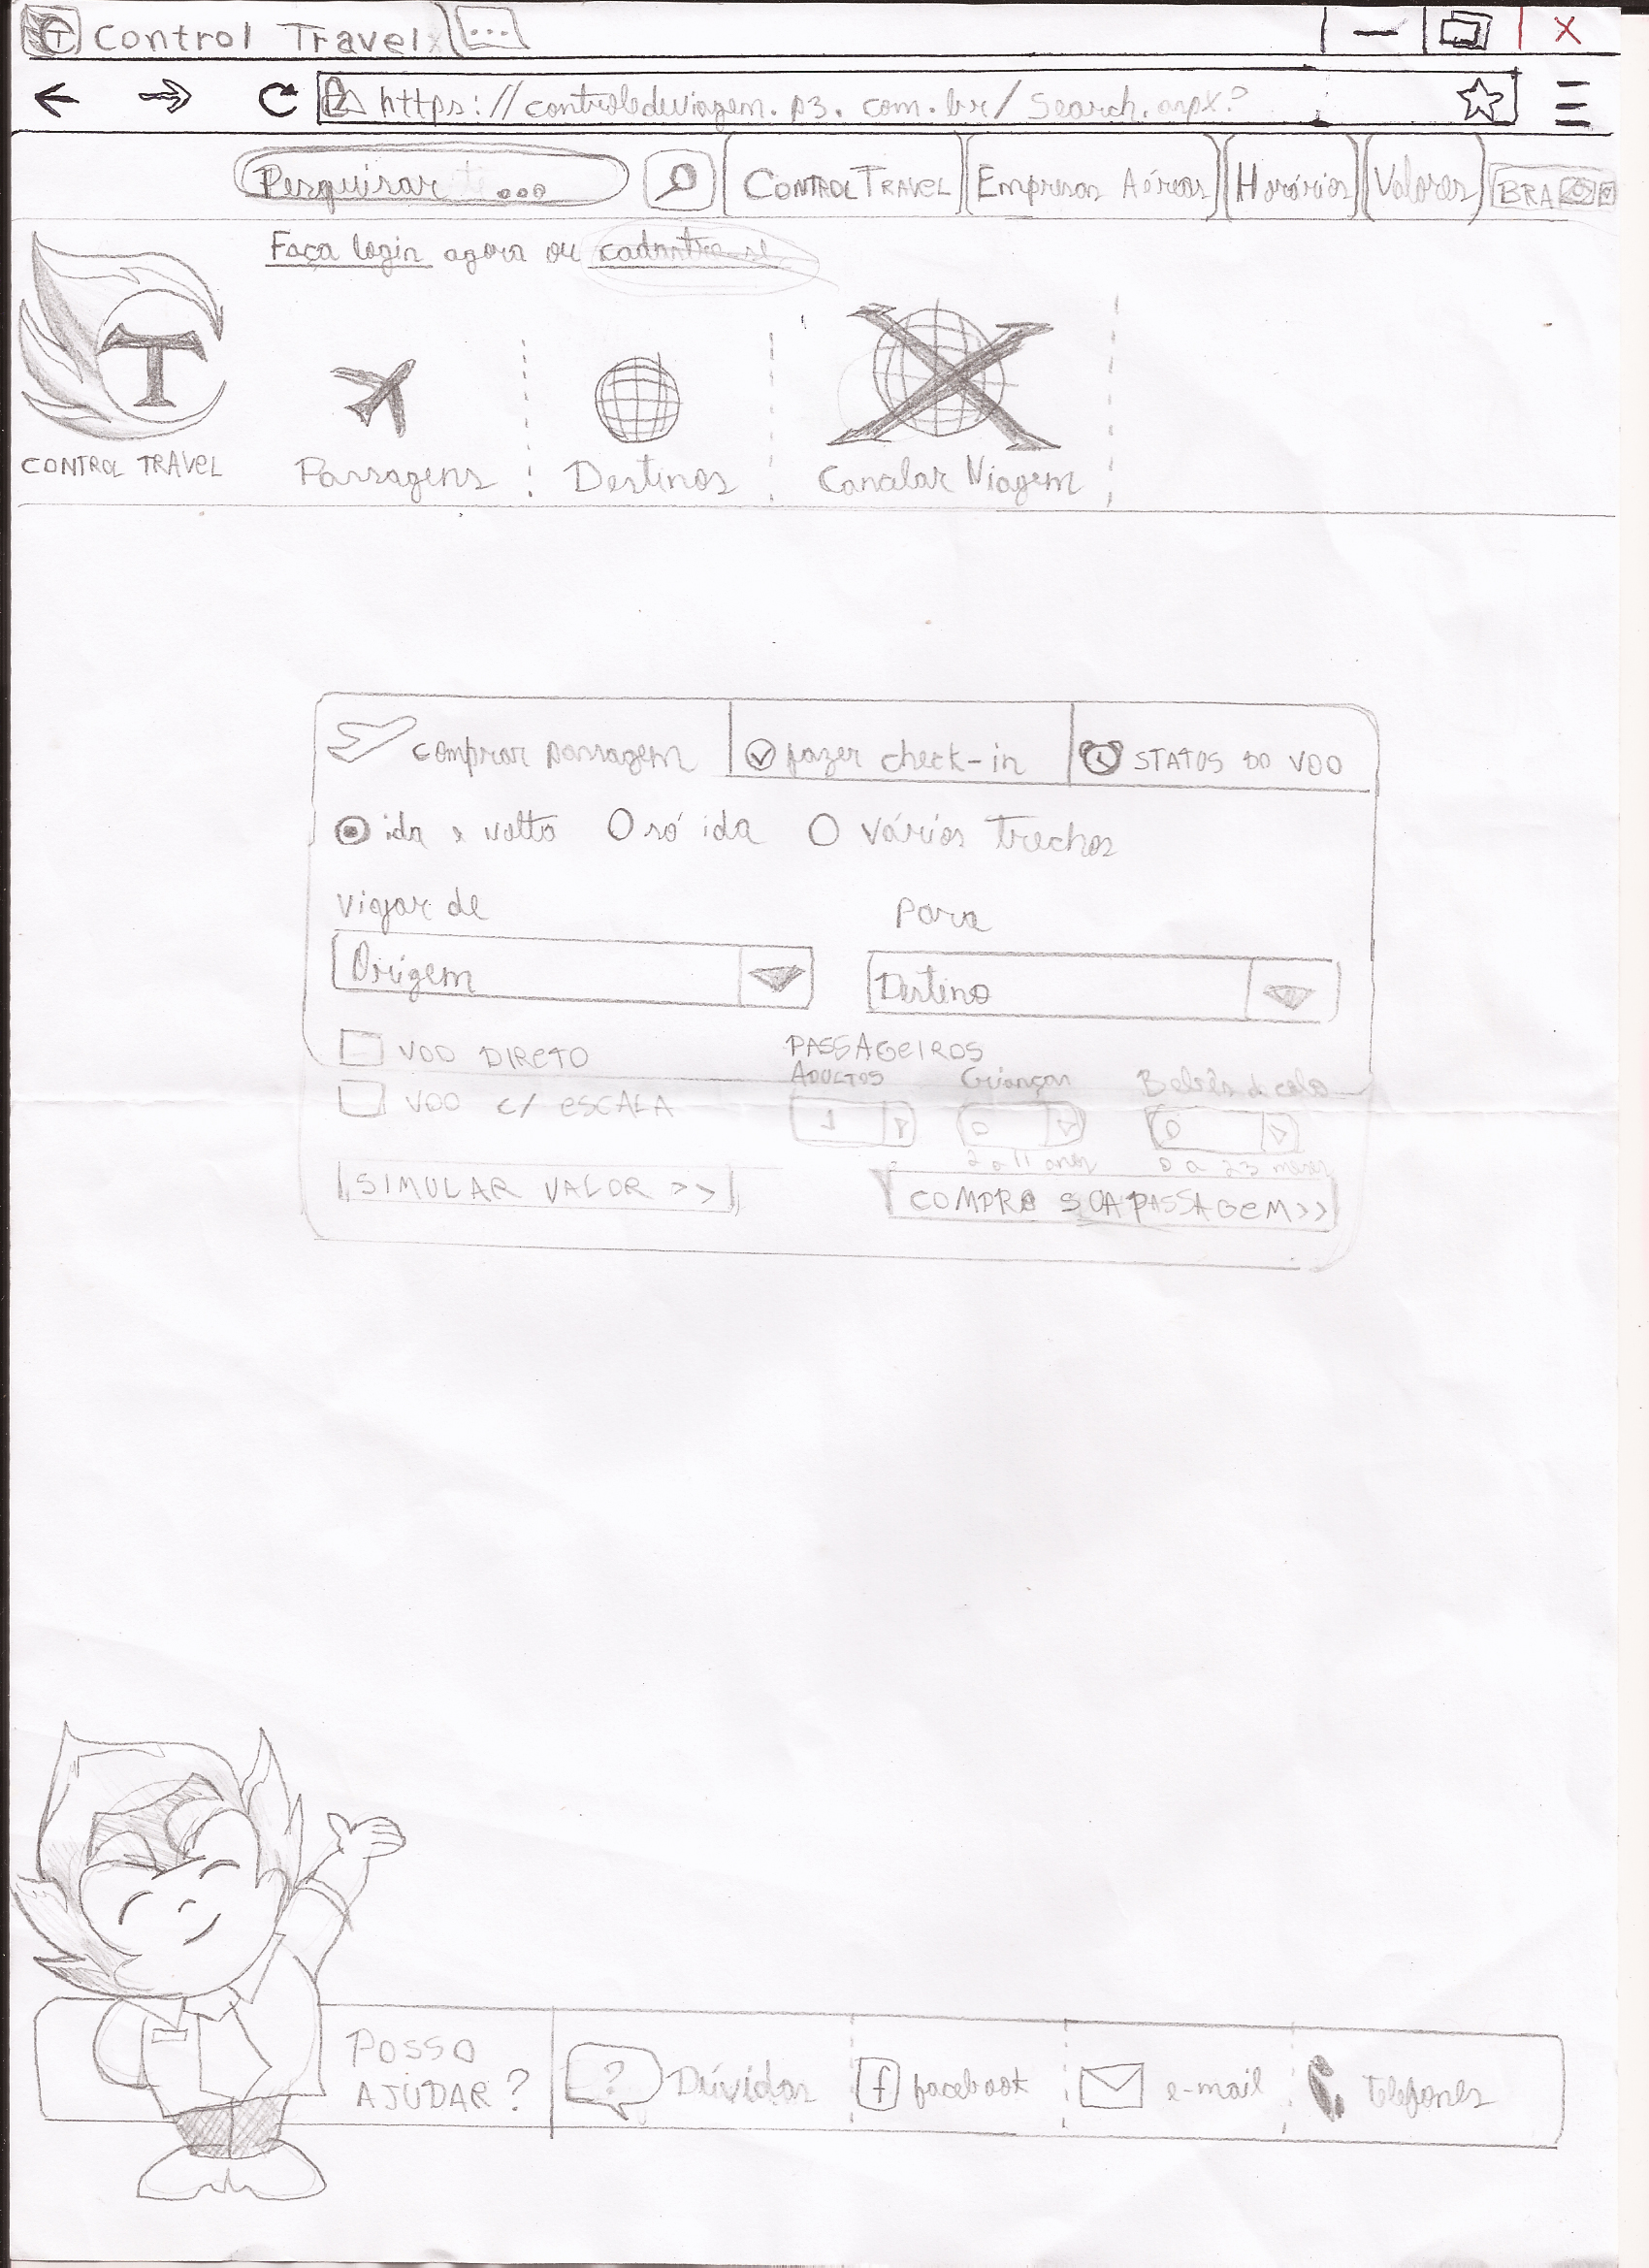 T Control Travel x ...
https://controledeviagem.p3.com.br/Search.aspx?
Pesquisar ... CONTROL TRAVEL Empresas Aéreas Horários Valores BRA
Faça login agora ou cadastre-se
T
CONTROL TRAVEL Passagens Destinos Cancelar Viagem
comprar passagem fazer check-in STATUS DO VOO
ida e volta só ida Vários Trechos
Viajar de Para
Origem Destino
VOO DIRETO PASSAGEIROS
ADULTOS Crianças Bebês de colo
VOO c/ ESCALA 1 0 0
2 a 11 anos 0 a 23 meses
SIMULAR VALOR >> COMPRE SUA PASSAGEM>>
POSSO
AJUDAR? ? Dúvidas f facebook e-mail Telefones